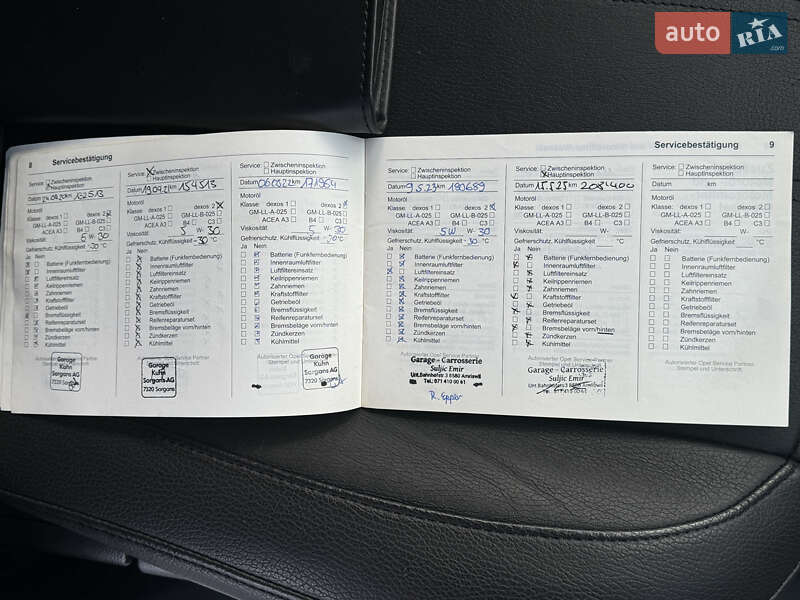 auto RIA.com
8 Servicebestätigung
Service: Zwischeninspektion
Hauptinspektion
Datum 24.09.20 km 102513
Motoröl
Klasse: dexos 1 dexos 2
GM-LL-A-025 GM-LL-B-025
ACEA A3 B4 C3
Viskosität: 5 W- 30
Gefrierschutz, Kühlflüssigkeit -30 °C
Ja Nein
Batterie (Funkfernbedienung)
Innenraumluftfilter
Luftfiltereinsatz
Keilrippenriemen
Zahnriemen
Kraftstofffilter
Getriebeöl
Bremsflüssigkeit
Reifenreparaturset
Bremsbeläge vorn/hinten
Zündkerzen
Kühlmittel
Garage
Kuhn
Sargans AG
7320 Sargans
Service: Zwischeninspektion
Hauptinspektion
Datum 19.04.21 km 154513
Motoröl
Klasse: dexos 1 dexos 2
GM-LL-A-025 GM-LL-B-025
ACEA A3 B4 C3
Viskosität: 5 W- 30
Gefrierschutz, Kühlflüssigkeit -30 °C
Ja Nein
Batterie (Funkfernbedienung)
Innenraumluftfilter
Luftfiltereinsatz
Keilrippenriemen
Zahnriemen
Kraftstofffilter
Getriebeöl
Bremsflüssigkeit
Reifenreparaturset
Bremsbeläge vorn/hinten
Zündkerzen
Kühlmittel
Garage
Kuhn
Sargans AG
7320 Sargans
Service: Zwischeninspektion
Hauptinspektion
Datum 060322 km 171964
Motoröl
Klasse: dexos 1 dexos 2
GM-LL-A-025 GM-LL-B-025
ACEA A3 B4 C3
Viskosität: 5 W- 30
Gefrierschutz, Kühlflüssigkeit -20 °C
Ja Nein
Batterie (Funkfernbedienung)
Innenraumluftfilter
Luftfiltereinsatz
Keilrippenriemen
Zahnriemen
Kraftstofffilter
Getriebeöl
Bremsflüssigkeit
Reifenreparaturset
Bremsbeläge vorn/hinten
Zündkerzen
Kühlmittel
Autorisierter Opel Service Partner
Garage
Kuhn
Sargans AG
7320 Sargans
Servicebestätigung 9
Service: Zwischeninspektion
Hauptinspektion
Datum 9.5.23 km 190689
Motoröl
Klasse: dexos 1 dexos 2
GM-LL-A-025 GM-LL-B-025
ACEA A3 B4 C3
Viskosität: 5W W- 30
Gefrierschutz, Kühlflüssigkeit -30 °C
Ja Nein
Batterie (Funkfernbedienung)
Innenraumluftfilter
Luftfiltereinsatz
Keilrippenriemen
Zahnriemen
Kraftstofffilter
Getriebeöl
Bremsflüssigkeit
Reifenreparaturset
Bremsbeläge vorn/hinten
Zündkerzen
Kühlmittel
Garage - Carrosserie
Suljic Emir
Unt. Bahnhofstr. 3 8580 Amriswil
Tel.: 071 410 00 61
R. Eppler
Service: Zwischeninspektion
Hauptinspektion
Datum 15.5.25 km 208'400
Motoröl
Klasse: dexos 1 dexos 2
GM-LL-A-025 GM-LL-B-025
ACEA A3 B4 C3
Viskosität: W-
Gefrierschutz, Kühlflüssigkeit °C
Ja Nein
Batterie (Funkfernbedienung)
Innenraumluftfilter
Luftfiltereinsatz
Keilrippenriemen
Zahnriemen
Kraftstofffilter
Getriebeöl
Bremsflüssigkeit
Reifenreparaturset
Bremsbeläge vorn/hinten
Zündkerzen
Kühlmittel
Autorisierter Opel Service Partner
Stempel und Unterschrift
Garage - Carrosserie
Suljic Emir
Service: Zwischeninspektion
Hauptinspektion
Datum km
Motoröl
Klasse: dexos 1 dexos 2
GM-LL-A-025 GM-LL-B-025
ACEA A3 B4 C3
Viskosität: W-
Gefrierschutz, Kühlflüssigkeit °C
Ja Nein
Batterie (Funkfernbedienung)
Innenraumluftfilter
Luftfiltereinsatz
Keilrippenriemen
Zahnriemen
Kraftstofffilter
Getriebeöl
Bremsflüssigkeit
Reifenreparaturset
Bremsbeläge vorn/hinten
Zündkerzen
Kühlmittel
Autorisierter Opel Service Partner
Stempel und Unterschrift